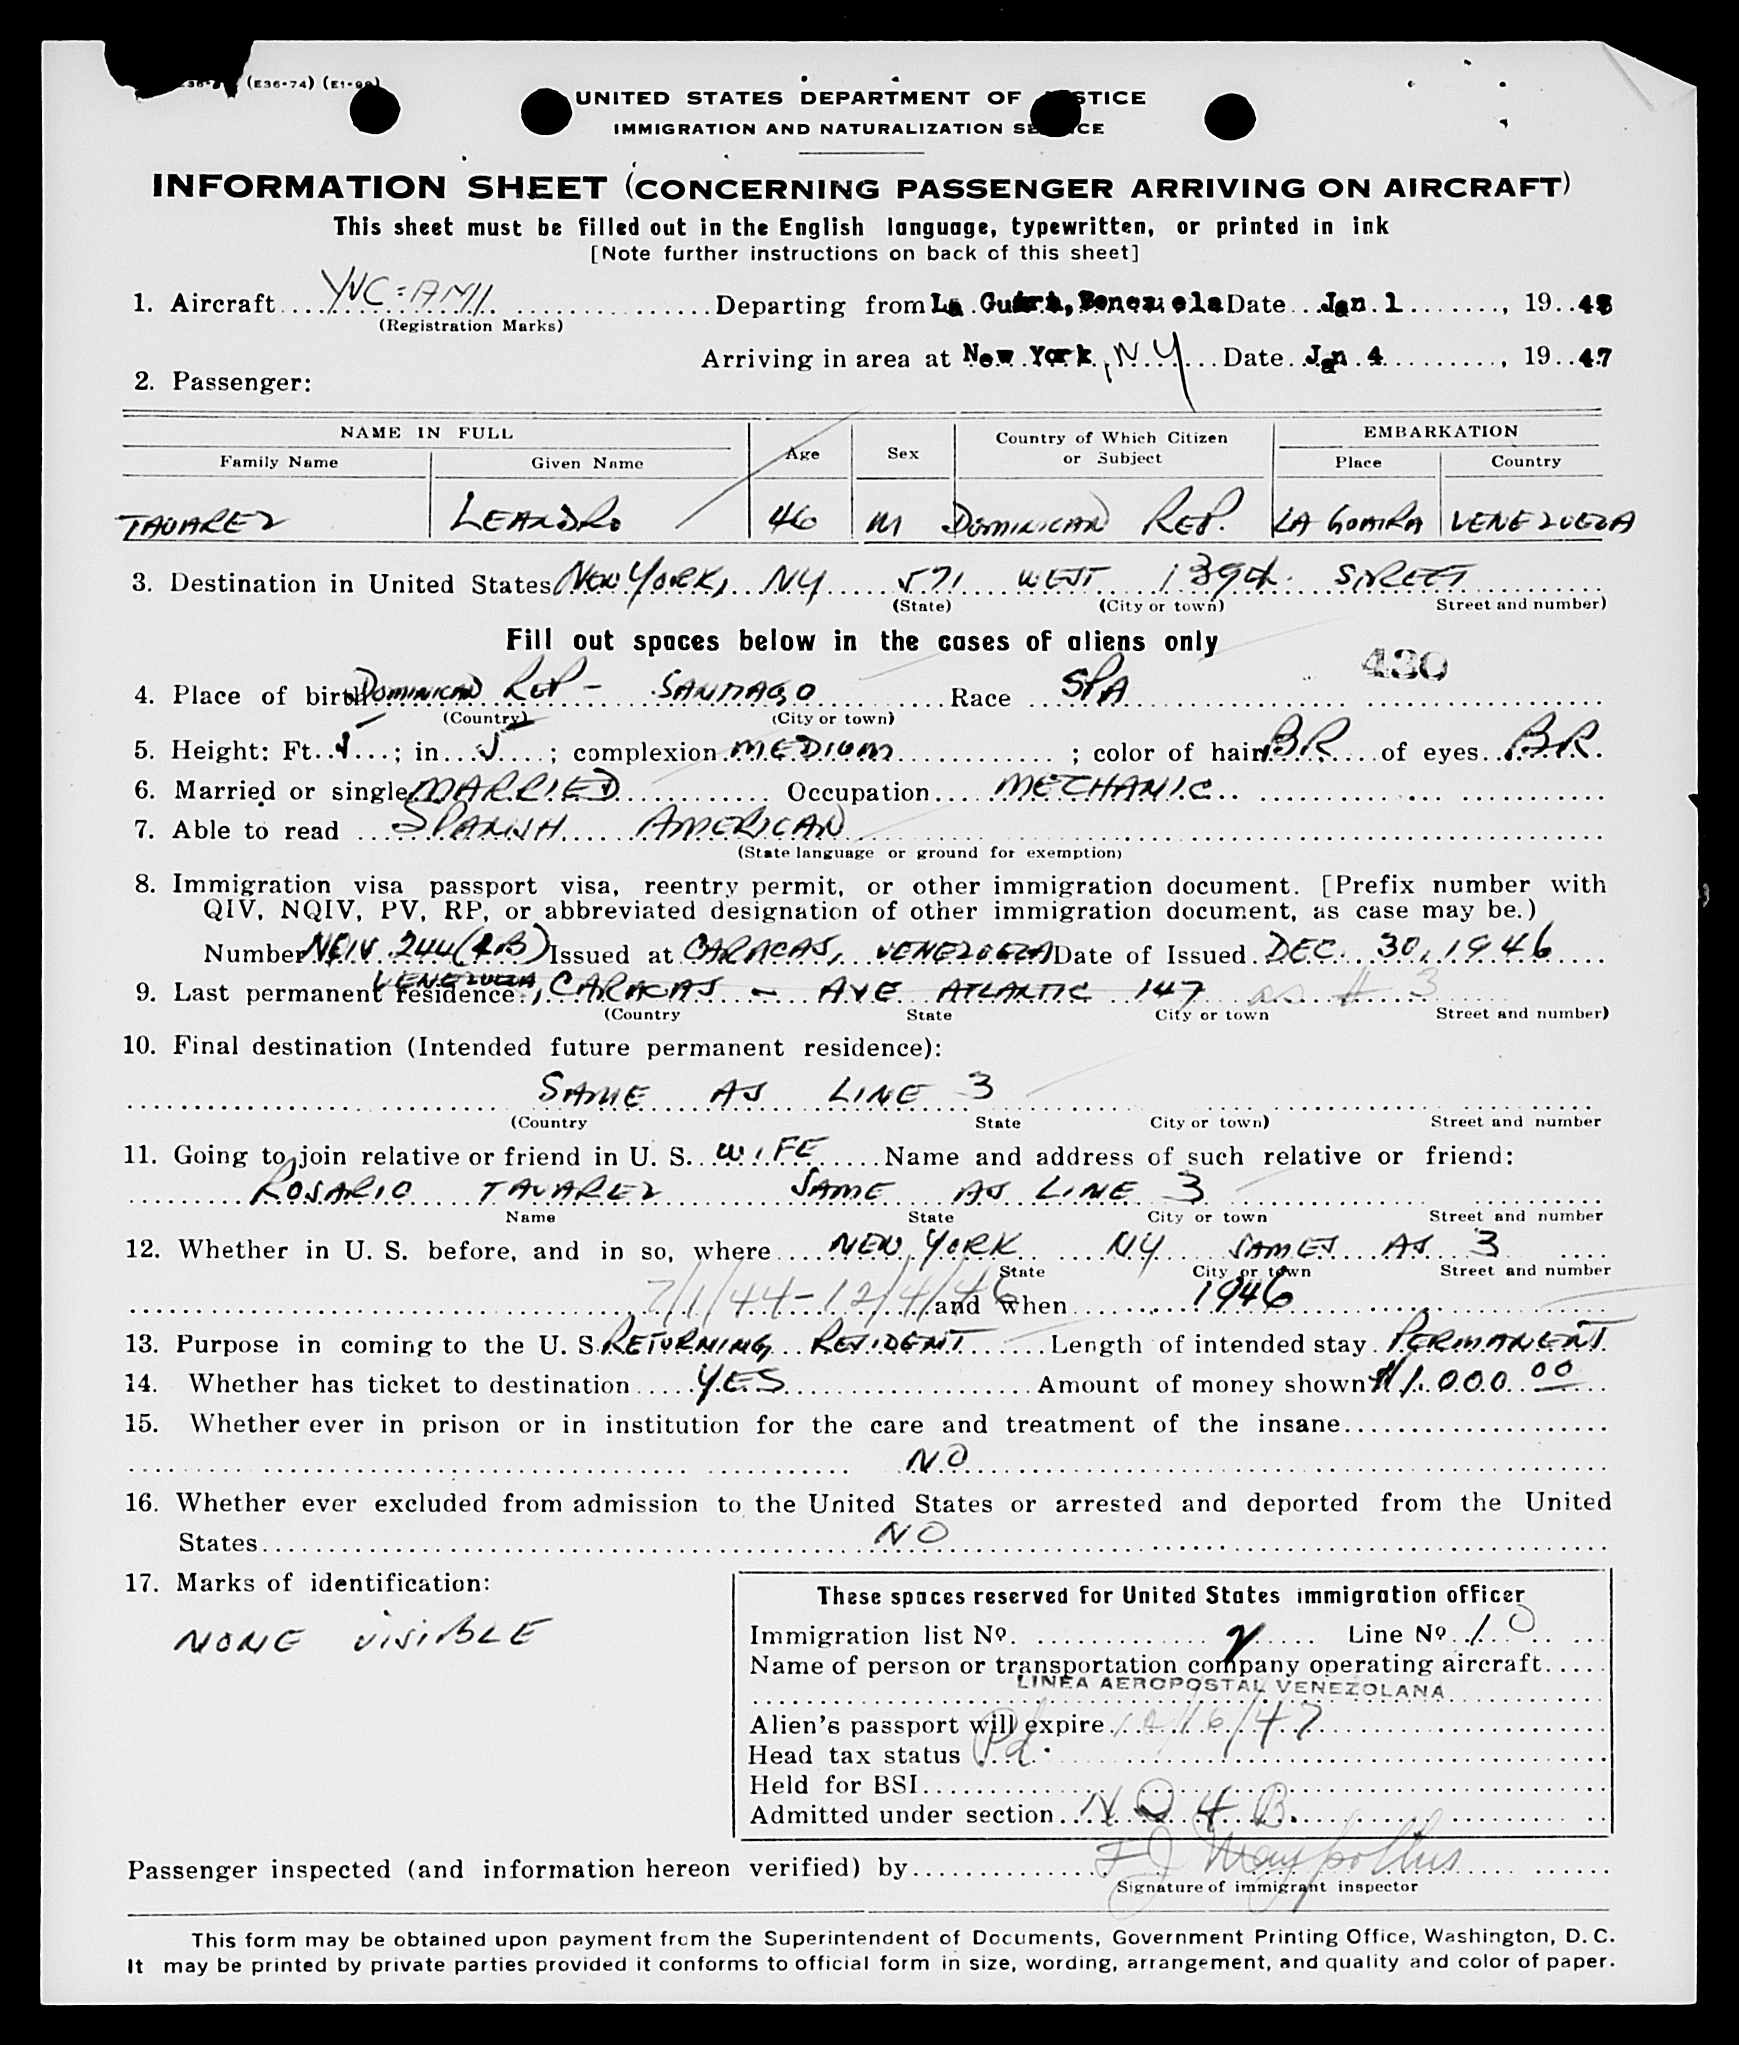 (E36-74) (E1-99)
UNITED STATES DEPARTMENT OF JUSTICE
IMMIGRATION AND NATURALIZATION SERVICE
INFORMATION SHEET (CONCERNING PASSENGER ARRIVING ON AIRCRAFT)
This sheet must be filled out in the English language, typewritten, or printed in ink
[Note further instructions on back of this sheet]
1. Aircraft YVC=AMI Departing from La Guaira, Venezuela Date Jan 1, 1948
(Registration Marks)
Arriving in area at New York, NY Date Jan 4, 1947
2. Passenger:
NAME IN FULL Age Sex Country of Which Citizen or Subject EMBARKATION
Family Name Given Name Place Country
TAVAREZ LEANDRO 46 M DOMINICAN REP. LA GOAIRA VENEZUELA
3. Destination in United States NEW YORK, NY 571 WEST 139th STREET
(State) (City or town) Street and number)
Fill out spaces below in the cases of aliens only
430
4. Place of birth DOMINICAN REP - SANTIAGO Race SPA
(Country) (City or town)
5. Height: Ft. 5; in 5; complexion MEDIUM; color of hair BR of eyes BR.
6. Married or single MARRIED Occupation MECHANIC
7. Able to read SPANISH AMERICAN
(State language or ground for exemption)
8. Immigration visa passport visa, reentry permit, or other immigration document. [Prefix number with
QIV, NQIV, PV, RP, or abbreviated designation of other immigration document, as case may be.)
Number NQIV 244 (4B) Issued at CARACAS, VENEZUELA Date of Issued DEC. 30, 1946
9. Last permanent residence VENEZUELA, CARACAS - AVE ATLANTIC 147 as # 3
(Country State City or town Street and number)
10. Final destination (Intended future permanent residence):
SAME AS LINE 3
(Country State City or town) Street and number
11. Going to join relative or friend in U. S. WIFE Name and address of such relative or friend:
ROSARIO TAVAREZ SAME AS LINE 3
Name State City or town Street and number
12. Whether in U. S. before, and in so, where NEW YORK NY SAMES AS 3
State City or town Street and number
7/1/44-12/4/46 and when 1946
13. Purpose in coming to the U. S. RETURNING RESIDENT Length of intended stay PERMANENT
14. Whether has ticket to destination YES Amount of money shown $1.000 00
15. Whether ever in prison or in institution for the care and treatment of the insane
NO
16. Whether ever excluded from admission to the United States or arrested and deported from the United
States NO
17. Marks of identification:
NONE VISIBLE
These spaces reserved for United States immigration officer
Immigration list No. 2 Line No. 10
Name of person or transportation company operating aircraft
LINEA AEROPOSTAL VENEZOLANA
Alien's passport will expire 12/16/47
Head tax status Pd.
Held for BSI
Admitted under section NQ 4 B.
Passenger inspected (and information hereon verified) by
Signature of immigrant inspector
This form may be obtained upon payment from the Superintendent of Documents, Government Printing Office, Washington, D. C.
It may be printed by private parties provided it conforms to official form in size, wording, arrangement, and quality and color of paper.